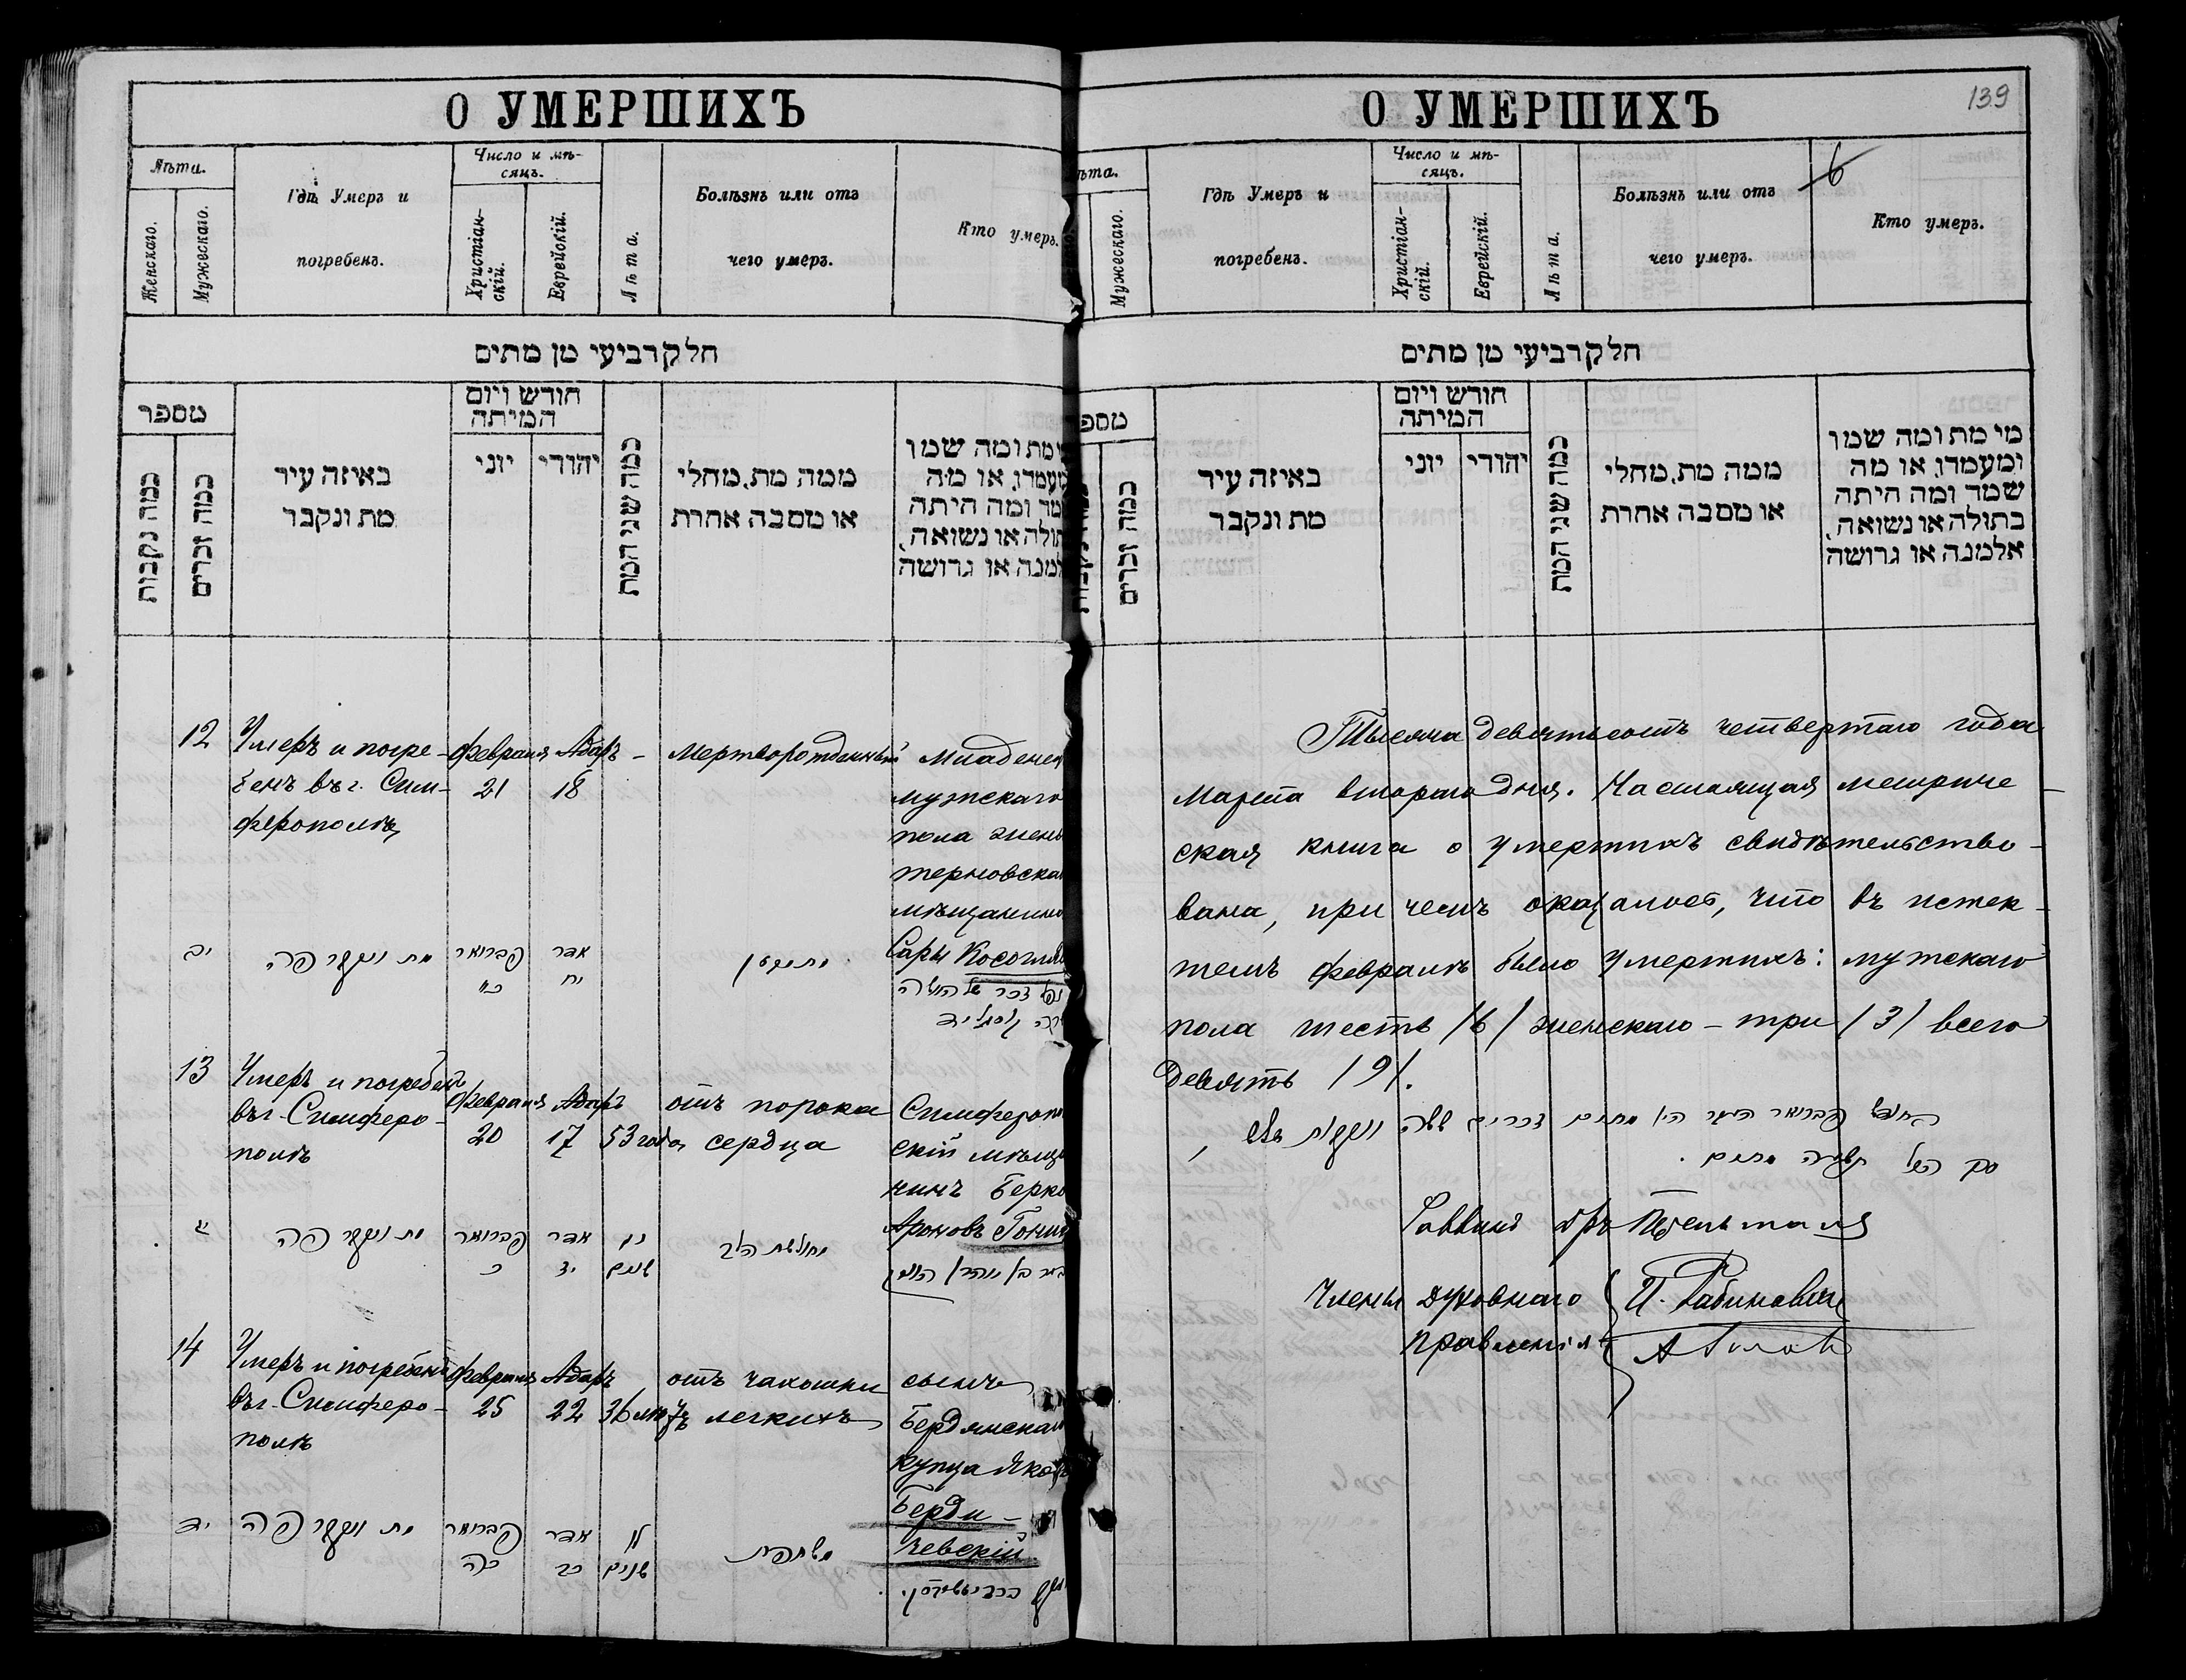 О УМЕРШИХЪ
Лѣта.
Женскаго.
Мужескаго.
Гдѣ Умеръ и
погребенъ.
Число и мѣ-
сяцъ.
Христіан-
скій.
Еврейскій.
Лѣта.
Болѣзнь или отъ
чего умеръ.
Кто умеръ.
חלק רביעי מן מתים
מספר
כמה נקבות
כמה זכרים
באיזה עיר
מת ונקבר
חודש ויום
המיתה
יוני
יהודי
כמה שני המת
ממה מת, מחלי
או מסבה אחרת
מת ומה שמו
או מה
ומה היתה
או נשואה,
או גרושה
12
Умеръ и погре-
бенъ въ г. Сим-
ферополѣ
Февраля
21
Адаръ
18
-
Мертворожденный
Младенецъ
мужескаго
пола
Сары
יב
מת ונקבר פה
פברואר
כא
אדר
יח
13
Умеръ и погребенъ
въ г. Симферо-
полѣ
Февраля
20
Адаръ
17
53 года
отъ порока
сердца
Симферопо
скій мѣща
нинъ Берко
Ароновъ
מת ונקבר פה
פברואר
כ
אדר
יז
נג
שנים
מחולשת הלב
14
Умеръ и погребенъ
въ г. Симферо-
полѣ
Февраля
25
Адаръ
22
36 лѣтъ
отъ чахотки
легкихъ
сынъ
Бердянскаго
купца Яковъ
Берди-
чевскій
יד
מת ונקבר פה
פברואר
כה
אדר
כב
לו
שנים
משחפת
139
О УМЕРШИХЪ
6
Мужескаго.
Гдѣ Умеръ и
погребенъ.
Число и мѣ-
сяцъ.
Христіан-
скій.
Еврейскій.
Лѣта.
Болѣзнь или отъ
чего умеръ.
Кто умеръ.
חלק רביעי מן מתים
כמה זכרים
באיזה עיר
מת ונקבר
חודש ויום
המיתה
יוני
יהודי
כמה שני המת
ממה מת, מחלי
או מסבה אחרת
מי מת ומה שמו
ומעמדו, או מה
שמד ומה היתה
בתולה או נשואה,
אלמנה או גרושה
Тысяча девятьсотъ четвертаго года
Марта второго дня. Настоящая метриче-
ская книга о умершихъ свидѣтельство-
вана, при чемъ оказалось, что въ истек-
шемъ февралѣ было умершихъ: мужскаго
пола шесть /6/ женскаго - три /3/ всего
девять /9/.
בחודש פברואר העבר היו מתים זכרים ששה ונקבות שלש,
סך הכל תשעה מתים.
Раввинъ
Члены Духовнаго
Правленія
И. Рабиновичъ